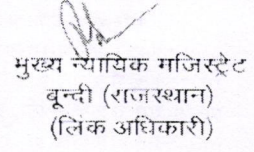 मुख्य न्यायिक मजिस्ट्रेट
बून्दी (राजस्थान)
(लिंक अधिकारी)